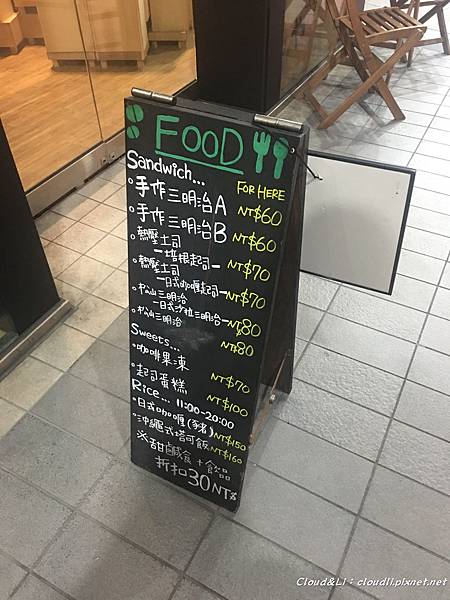 FOOD
Sandwich...
FOR HERE
手作三明治A NT$60
手作三明治B NT$60
熱壓土司
—培根起司— NT$70
熱壓土司
—日式咖喱起司— NT$70
松山三明治
—日式沙拉三明治— NT$80
松山三明治 NT$80
Sweets...
咖啡果凍 NT$70
起司蛋糕 NT$100
Rice... 11:00-20:00
日式咖喱(豬) NT$150
沖繩式塔可飯 NT$160
※甜鹹食+飲品
折扣30NT$
Cloud&LI：cloudli.pixnet.net